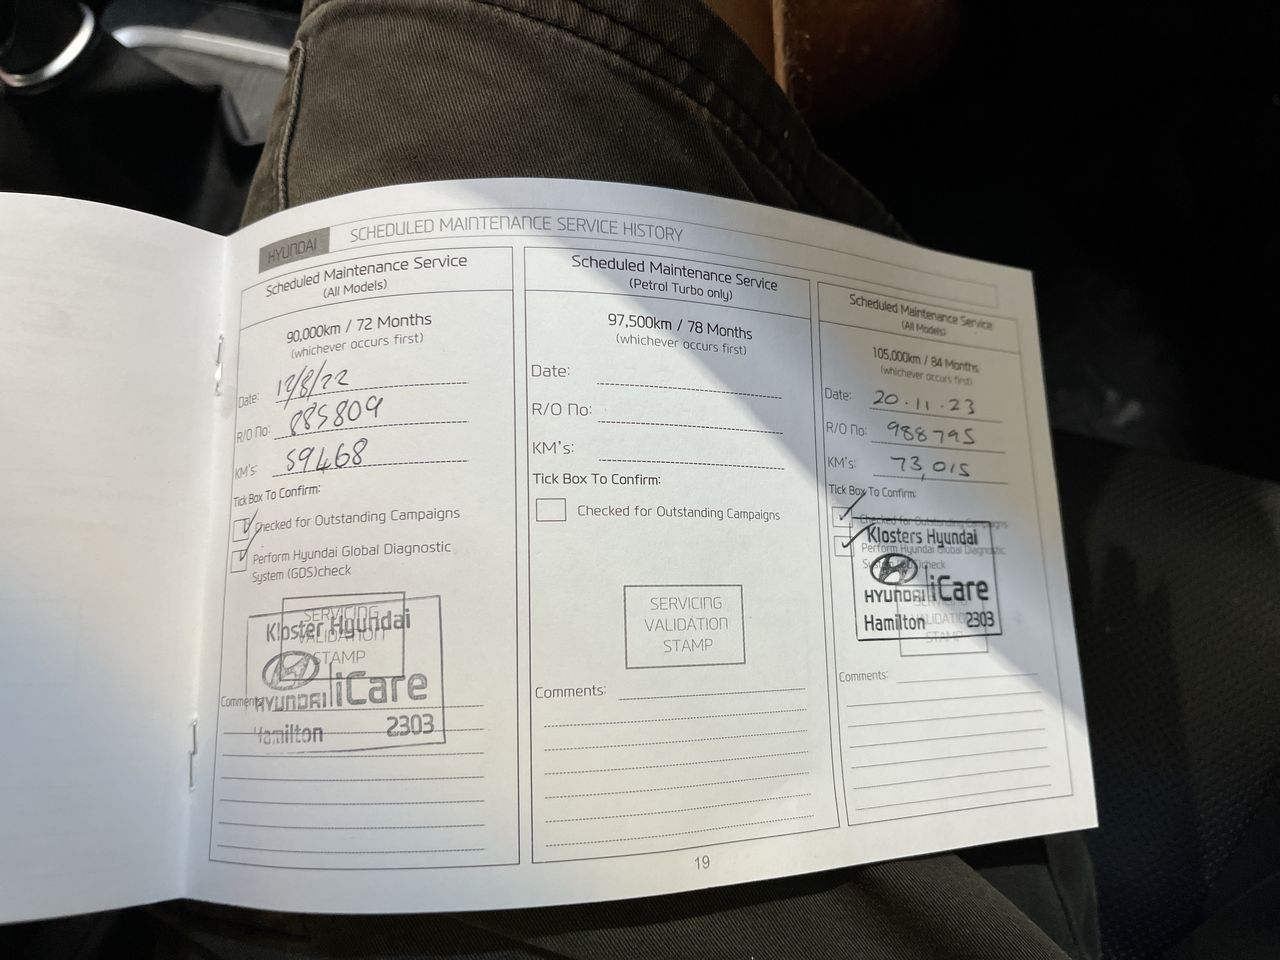 HYUNDAI SCHEDULED MAINTENANCE SERVICE HISTORY
Scheduled Maintenance Service
(All Models)
90,000km / 72 Months
(whichever occurs first)
Date: 12/8/22
R/O No: 885809
KM's: 59468
Tick Box To Confirm:
Checked for Outstanding Campaigns
Perform Hyundai Global Diagnostic
System (GDS)check
SERVICING
VALIDATION
STAMP
Kloster Hyundai
HYUNDAI iCare
Hamilton 2303
Comments:
Scheduled Maintenance Service
(Petrol Turbo only)
97,500km / 78 Months
(whichever occurs first)
Date:
R/O No:
KM's:
Tick Box To Confirm:
Checked for Outstanding Campaigns
SERVICING
VALIDATION
STAMP
Comments:
Scheduled Maintenance Service
(All Models)
105,000km / 84 Months
(whichever occurs first)
Date: 20.11.23
R/O No: 988795
KM's: 73,015
Tick Box To Confirm:
Checked for Outstanding Campaigns
Perform Hyundai Global Diagnostic
System (GDS)check
Klosters Hyundai
HYUNDAI iCare
Hamilton 2303
SERVICING
VALIDATION
STAMP
Comments:
19